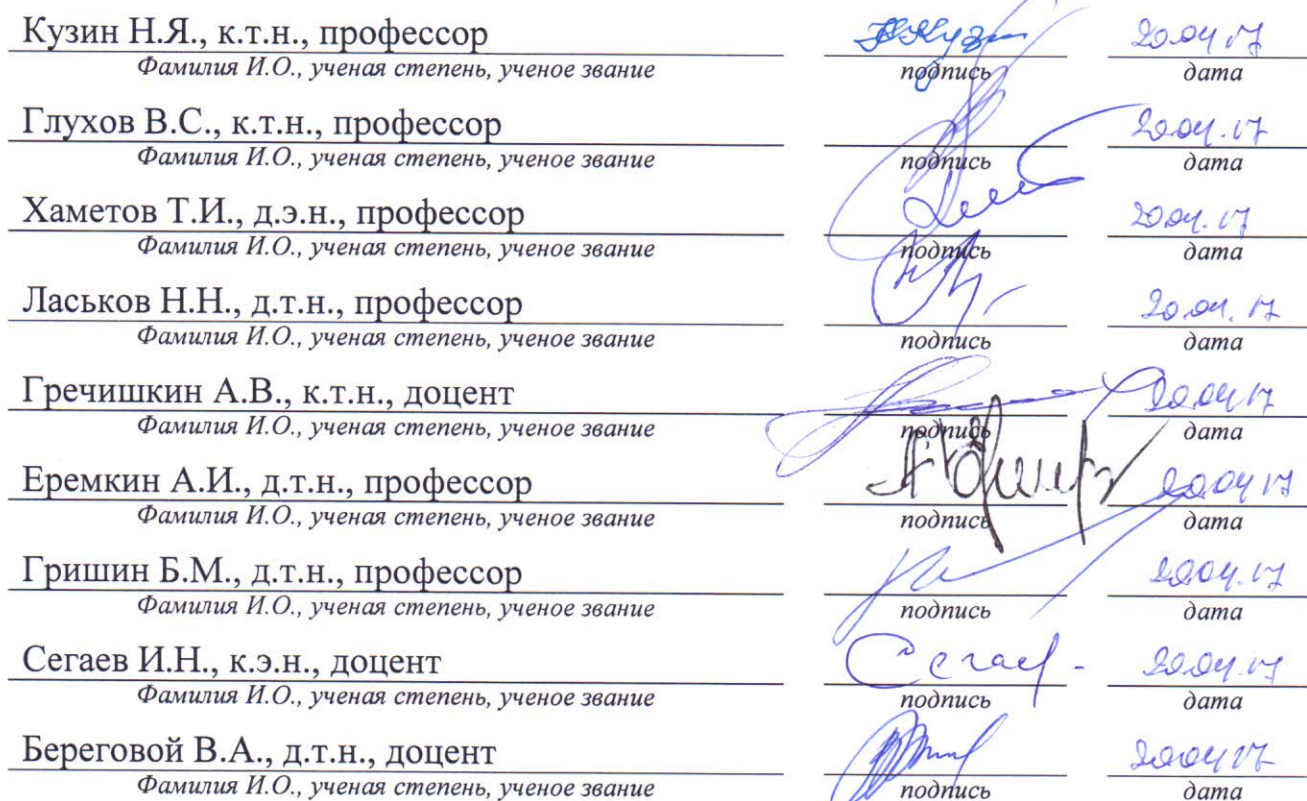 Кузин Н.Я., к.т.н., профессор 20.04.17
Фамилия И.О., ученая степень, ученое звание подпись дата
Глухов В.С., к.т.н., профессор 20.04.17
Фамилия И.О., ученая степень, ученое звание подпись дата
Хаметов Т.И., д.э.н., профессор 20.04.17
Фамилия И.О., ученая степень, ученое звание подпись дата
Ласьков Н.Н., д.т.н., профессор 20.04.17
Фамилия И.О., ученая степень, ученое звание подпись дата
Гречишкин А.В., к.т.н., доцент 20.04.17
Фамилия И.О., ученая степень, ученое звание подпись дата
Еремкин А.И., д.т.н., профессор 20.04.17
Фамилия И.О., ученая степень, ученое звание подпись дата
Гришин Б.М., д.т.н., профессор 20.04.17
Фамилия И.О., ученая степень, ученое звание подпись дата
Сегаев И.Н., к.э.н., доцент 20.04.17
Фамилия И.О., ученая степень, ученое звание подпись дата
Береговой В.А., д.т.н., доцент 20.04.17
Фамилия И.О., ученая степень, ученое звание подпись дата